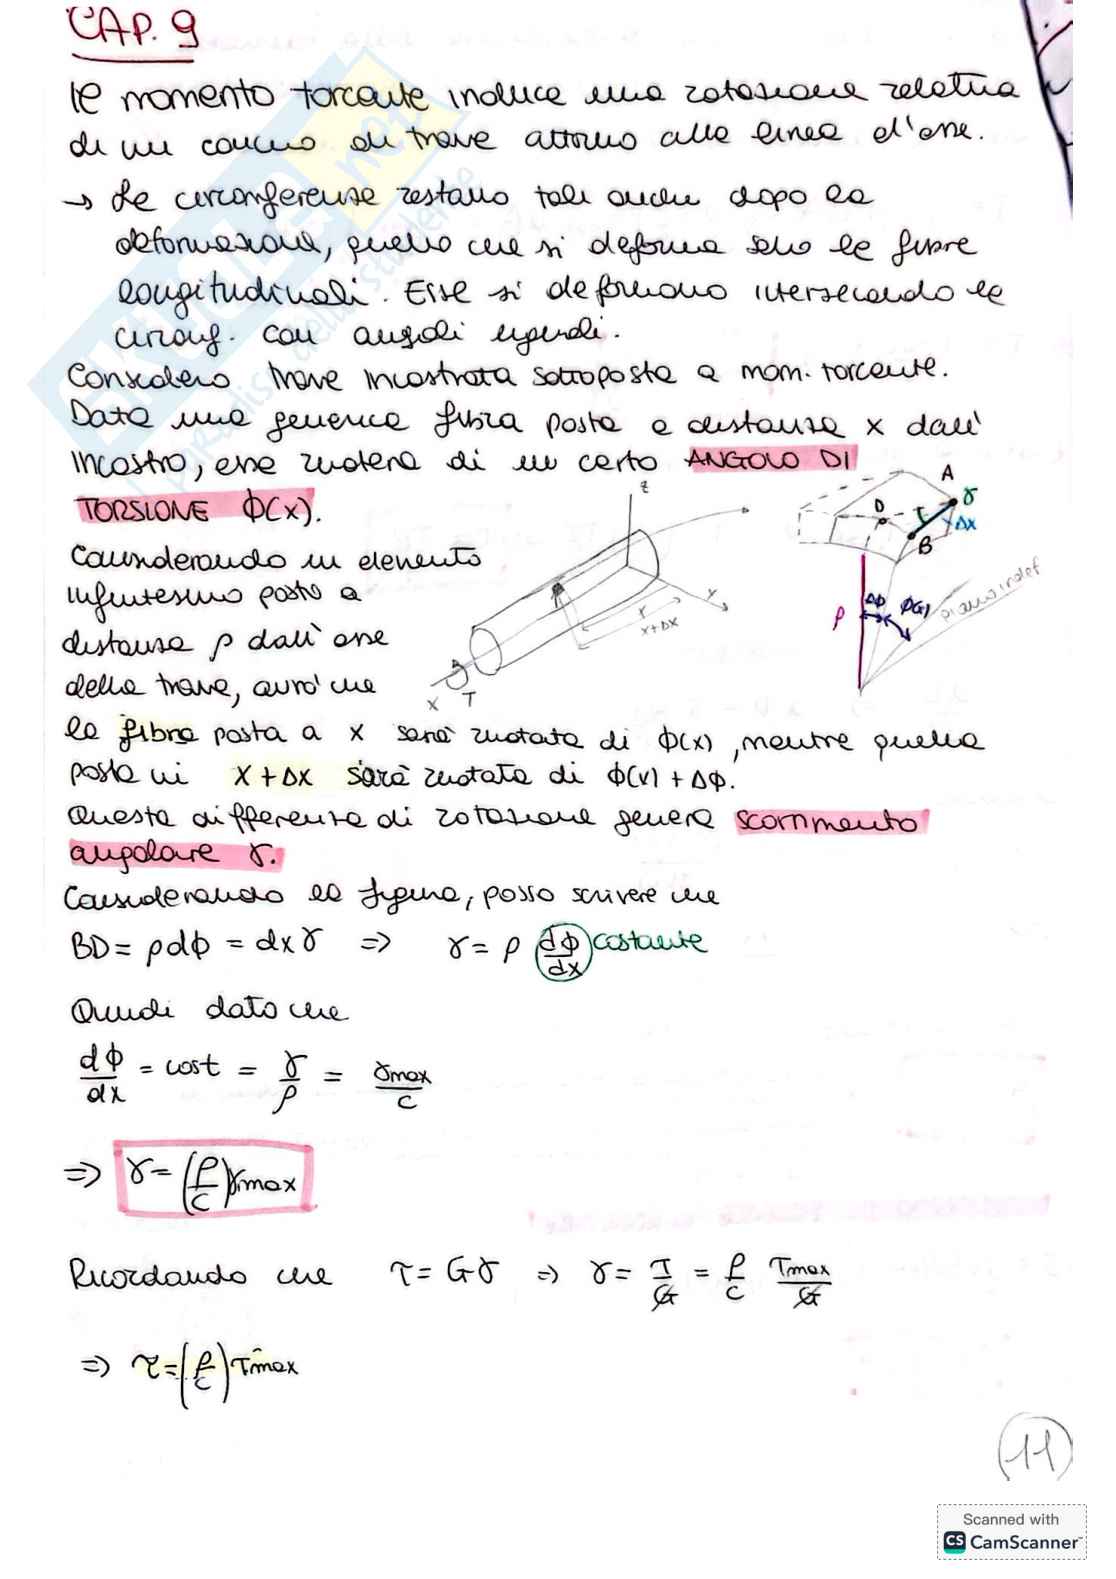 CAP. 9
Il momento torcente induce una rotazione relativa
di un concio di trave attorno alla linea d'asse.
→ Le circonferenze restano tali anche dopo la
deformazione, quello che si deforma sono le fibre
longitudinali. Esse si deformano intersecando le
circonf. con angoli uguali.
Considero trave incastrata sottoposta a mom. torcente.
Data una generica fibra posta a distanza x dall'
incastro, essa ruoterà di un certo ANGOLO DI
TORSIONE ϕ(x).
Considerando un elemento
infinitesimo posto a
distanza ρ dall'asse
della trave, avrò che
la fibra posta a x sarà ruotata di ϕ(x), mentre quella
posta in x+Δx sarà ruotata di ϕ(x)+Δϕ.
Questa differenza di rotazione genera scorrimento
angolare γ.
z
y
x
x+Δx
X
T
A
γ
D
Δx
B
ρ
Δϕ
ϕ(x)
piano indef
Considerando la figura, posso scrivere che
BD = ρdϕ = dxγ ⇒ γ = ρ dϕ/dx costante
Quindi dato che
dϕ/dx = cost = γ/ρ = γmax/c
⇒ γ = (ρ/c)γmax
Ricordando che τ = Gγ ⇒ γ = τ/G = ρ/c τmax/G
⇒ τ = (ρ/c)τmax
11
Scanned with
CS CamScanner
skuola.net
il paradiso dello studente